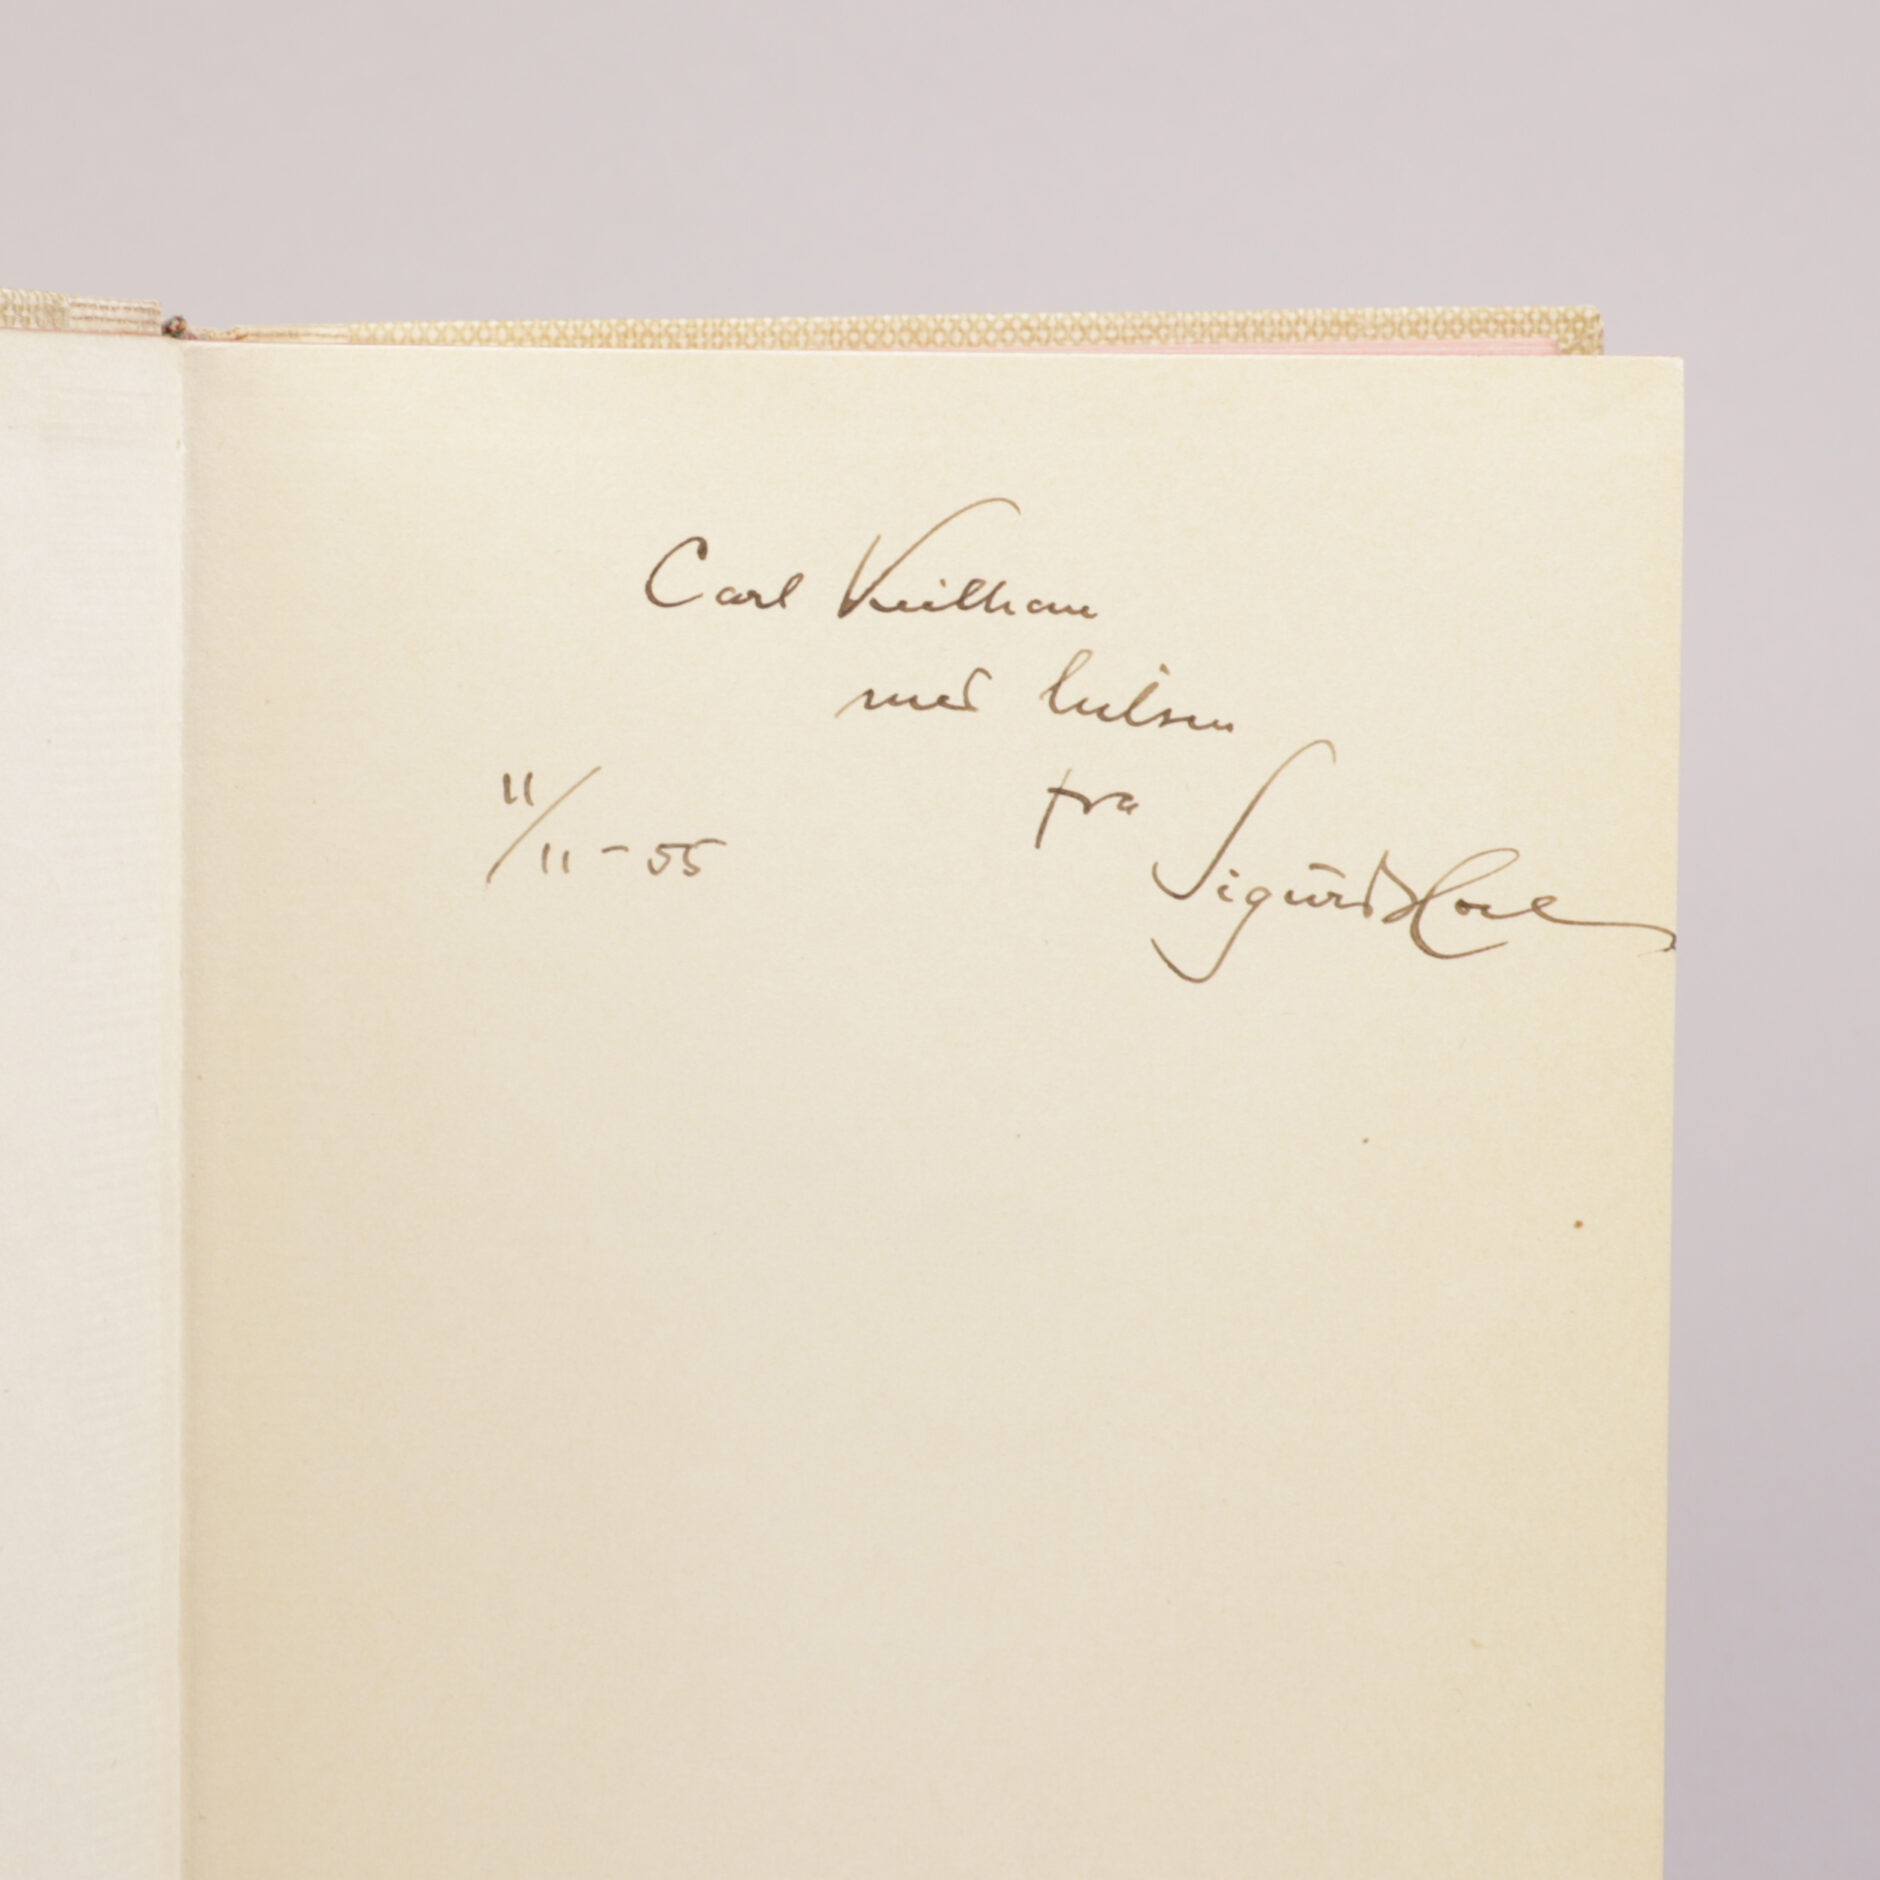 Carl Keilhau
med hilsen
fra
11/11-55
Sigurd Hoel